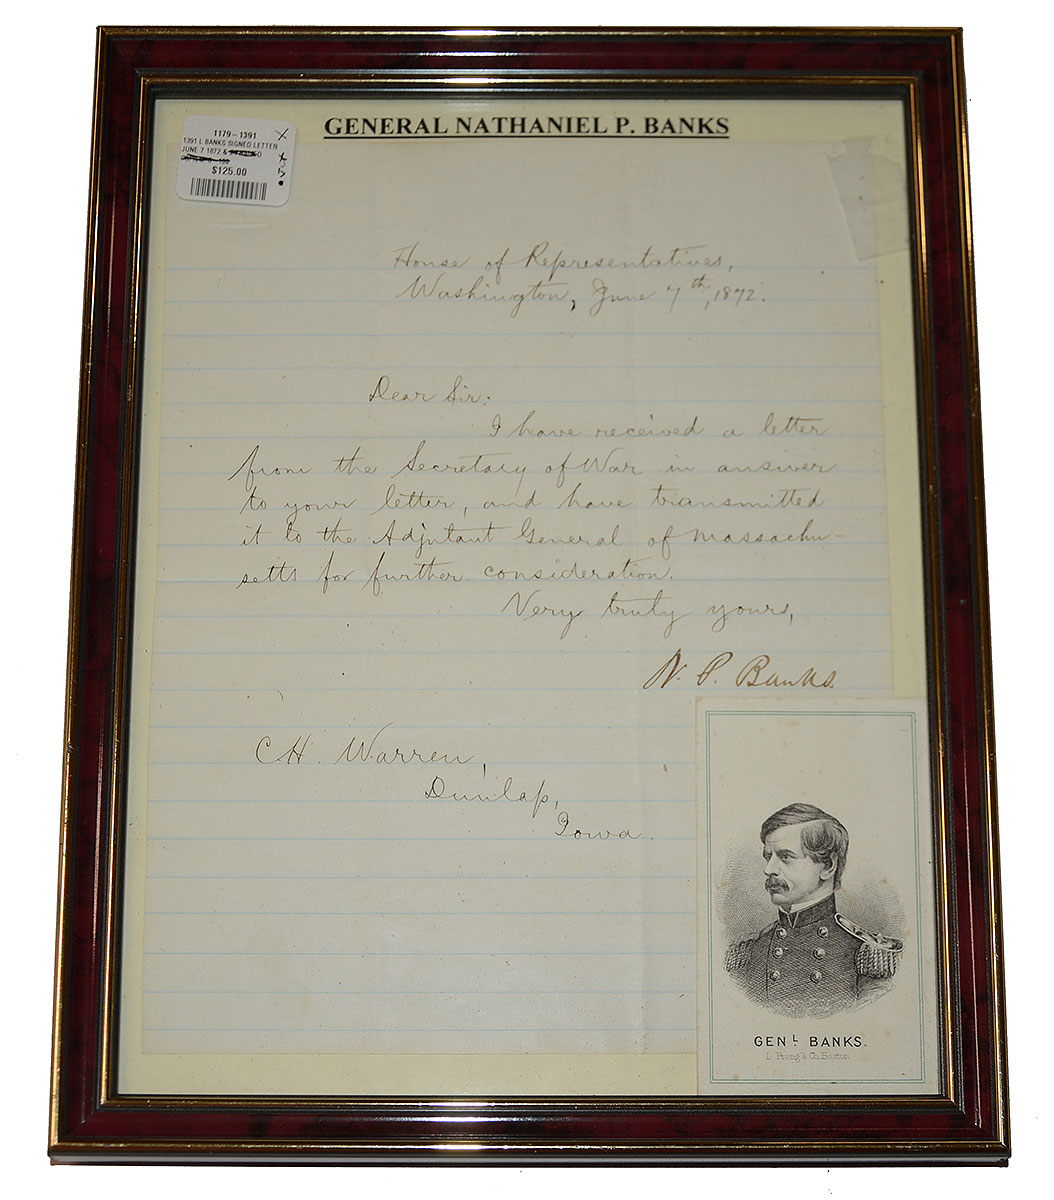 GENERAL NATHANIEL P. BANKS
1179-1391
1391 L BANKS SIGNED LETTER
JUNE 7 1872 &
$125.00
House of Representatives,
Washington, June 7th, 1872.
Dear Sir:
I have received a letter
from the Secretary of War in answer
to your letter, and have transmitted
it to the Adjutant General of Massachu-
setts for further consideration.
Very truly yours,
N. P. Banks.
C H. Warren,
Dunlap,
Iowa.
GENL. BANKS.
L. Prang & Co. Boston